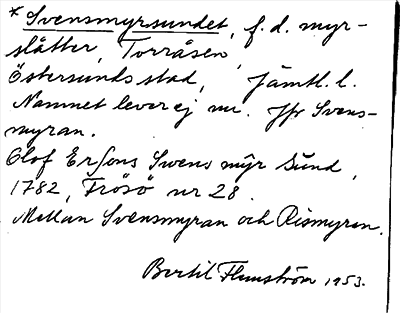 *Svensmyrsundet, f.d. myr-
slåtter, Torråsen,
Östersunds stad, Jämtl. l.
Namnet lever ej nu. Jfr Svens-
myran.
Olof Ersons Swens myr Sund,
1782, Frösö nr 28.
Mellan Svensmyran och Rismyren.
Bertil Flemström 1953.